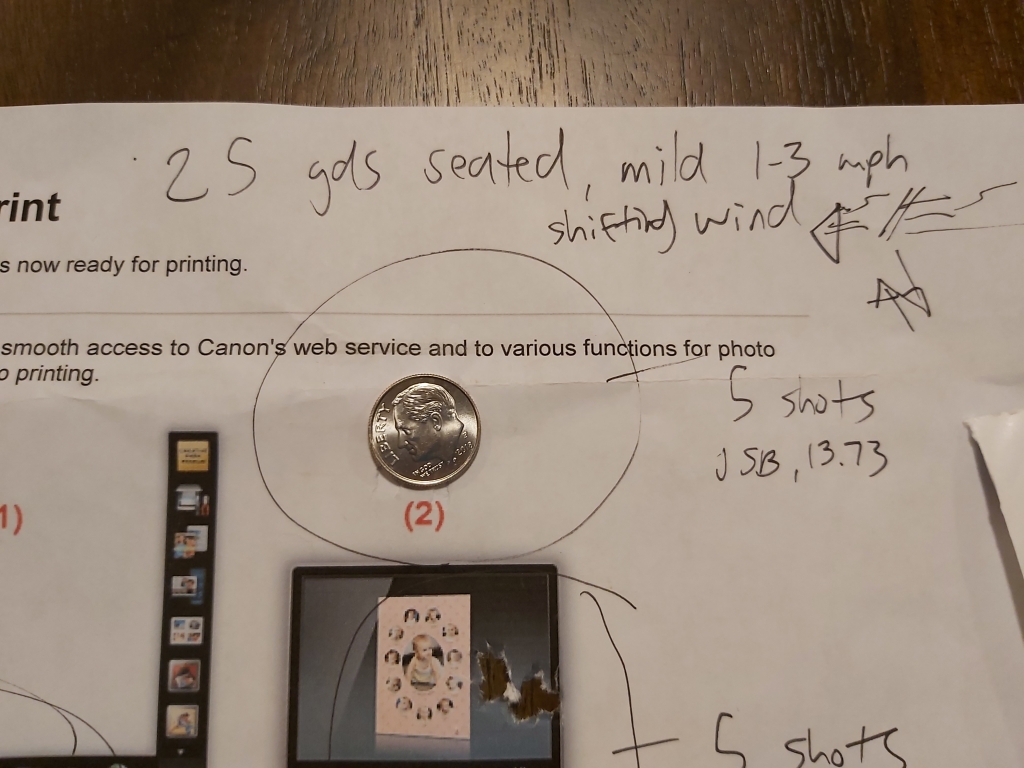 25 yds seated, mild 1-3 mph
shifting wind
rint
s now ready for printing.
smooth access to Canon's web service and to various functions for photo
o printing.
5 shots
JSB, 13.73
LIBERTY
IN GOD
WE TRUST
(2)
1)
5 shots